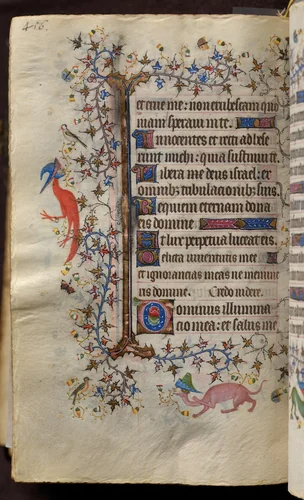 436.
et erue me: non erubescam quo
niam speraui in te.
Innocentes et recti adhese
runt michi: quia sustinui te.
Libera me deus israel: ex
omnibz tribulacionibz suis.
Requiem eternam dona
eis domine
Et lux perpetua luceat eis.
Delicta iuuentutis mee
et ignorancias meas ne memine
ris domine. Credo videre.
Dominus illumina
cio mea: et salus me